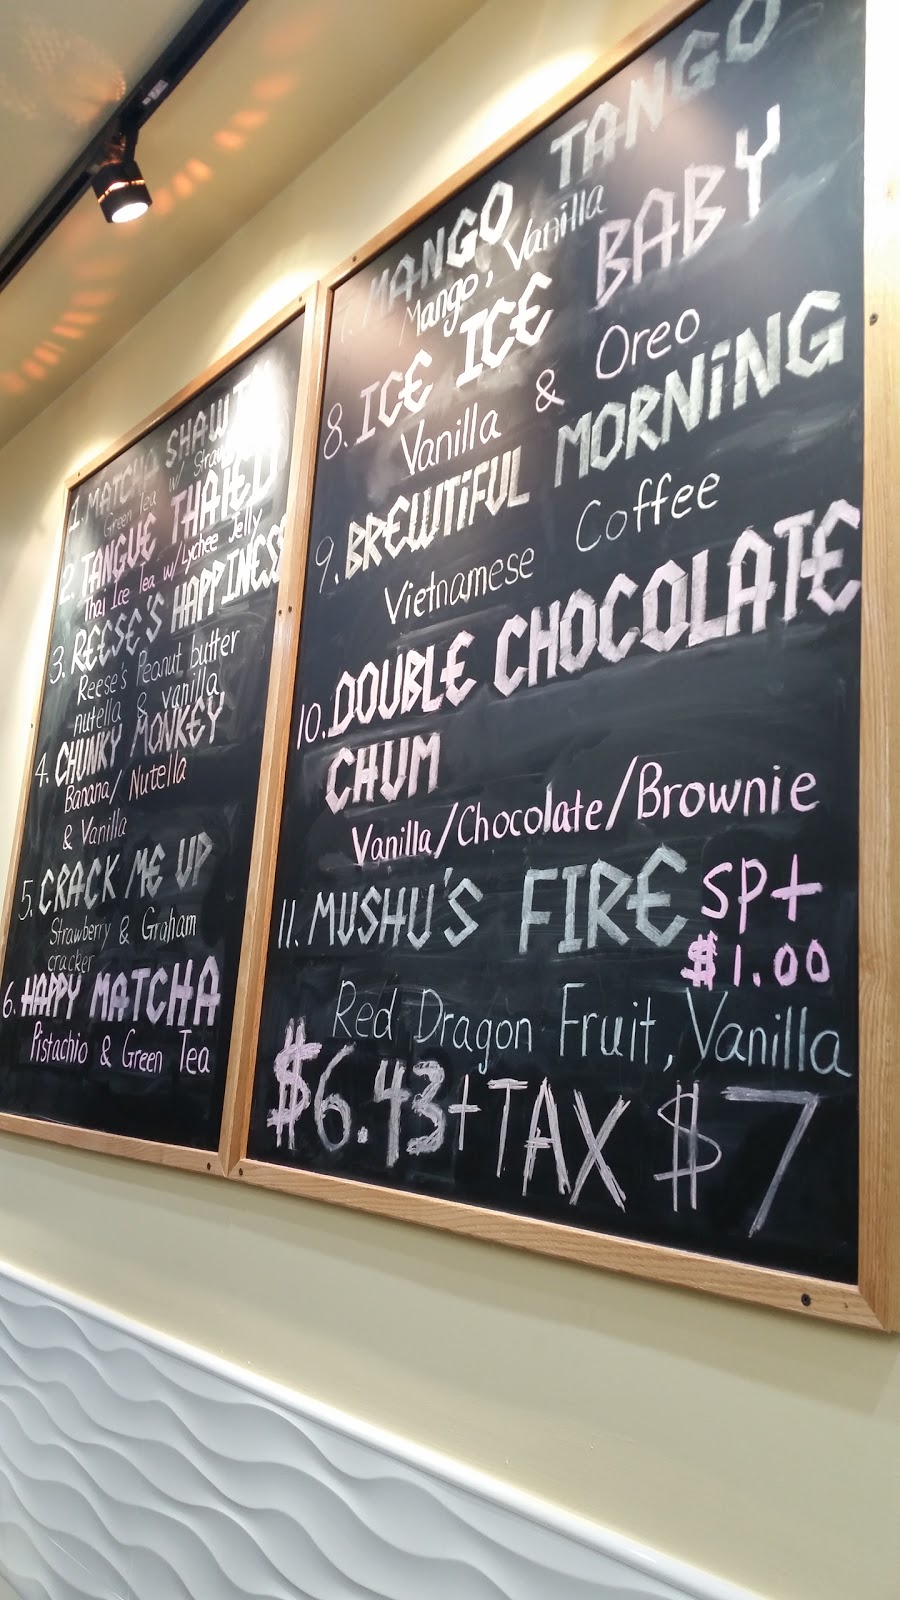 1. MATCHA SHAWTY
Green Tea w/
2. TANGUE THAIED
Thai Ice Tea w/ Lychee Jelly
3. REESE'S HAPPINESS
Reese's Peanut butter
nutella & vanilla
4. CHUNKY MONKEY
Banana/Nutella
& Vanilla
5. CRACK ME UP
Strawberry & Graham
cracker
6. HAPPY MATCHA
Pistachio & Green Tea
7. MANGO TANGO
Mango, Vanilla
8. ICE ICE BABY
Vanilla & Oreo
9. BREWTiFUL MORNiNG
Vietnamese Coffee
10. DOUBLE CHOCOLATE
CHUM
Vanilla/Chocolate/Brownie
11. MUSHU'S FIRE SP+
$1.00
Red Dragon Fruit, Vanilla
$6.43+TAX $7